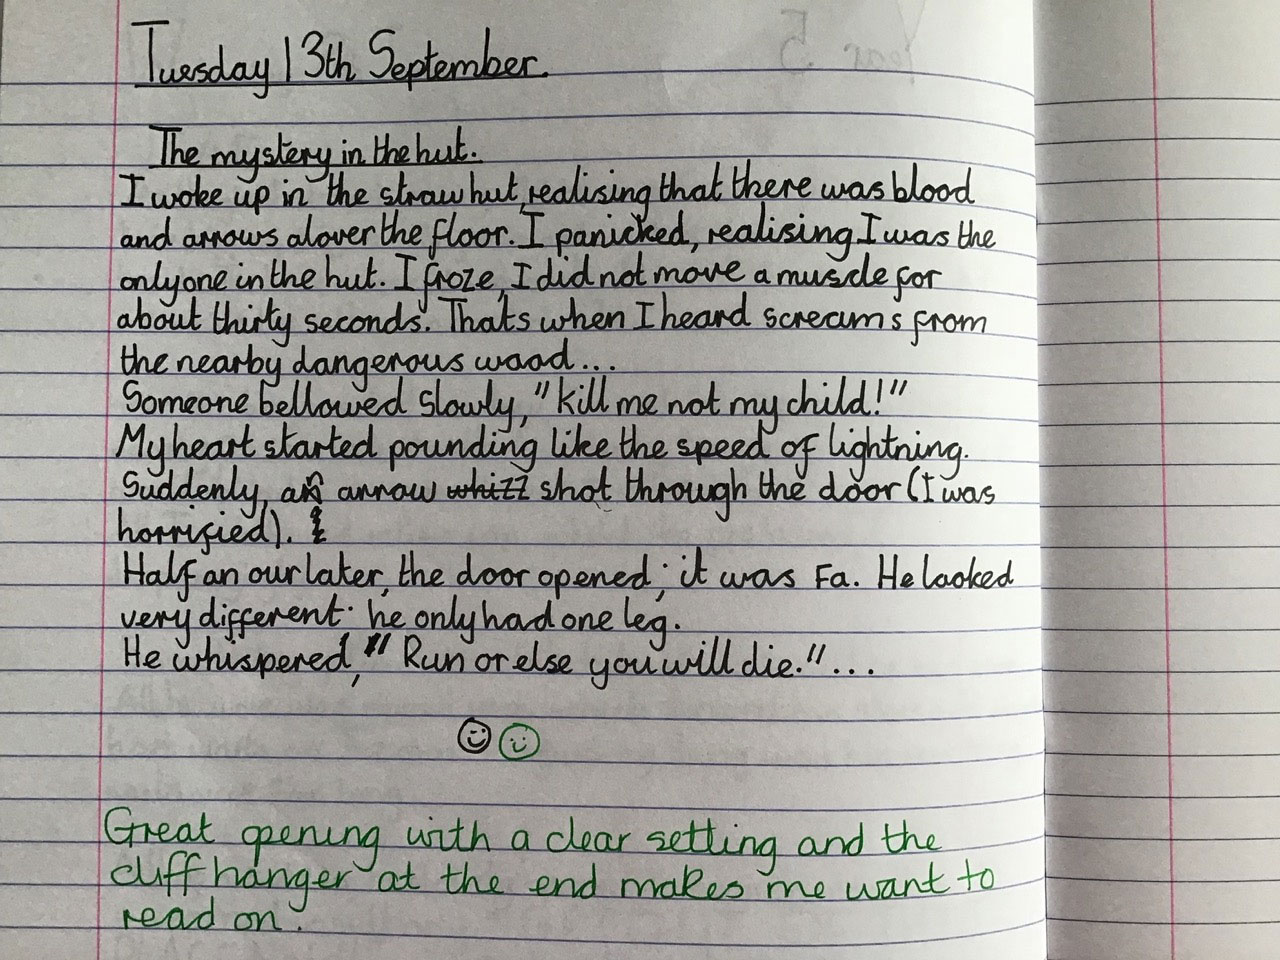 Tuesday 13th September.
The mystery in the hut.
I woke up in the straw hut, realising that there was blood
and arrows alover the floor. I panicked, realising I was the
only one in the hut. I froze, I did not move a muscle for
about thirty seconds. Thats when I heard screams from
the nearby dangerous wood...
Someone bellowed slowly, "kill me not my child!"
My heart started pounding like the speed of lightning.
Suddenly, an arrow whizz shot through the door (I was
horrified).
Half an our later, the door opened; it was Fa. He looked
very different. he only had one leg.
He whispered, "Run or else you will die."...
Great opening with a clear setting and the
cliff hanger at the end makes me want to
read on.